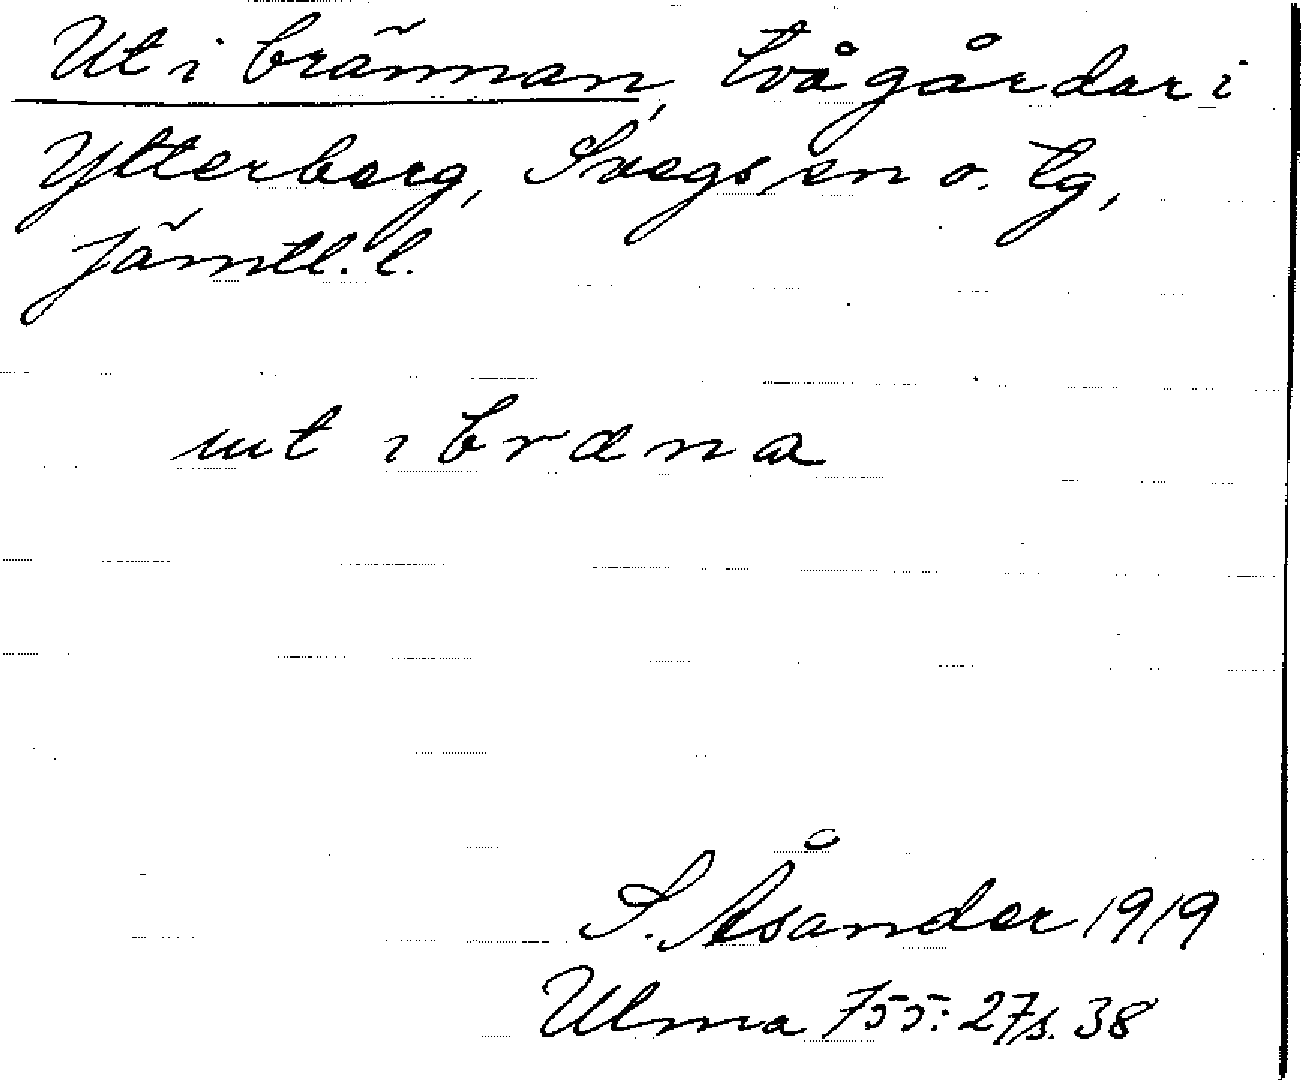 Ut i brännan, två gårdar i
Ytterberg, Svegs sn o. tg,
Jämtl. l.
ut i bræna
S. Åsander 1919
Ulma 755:27 s. 38